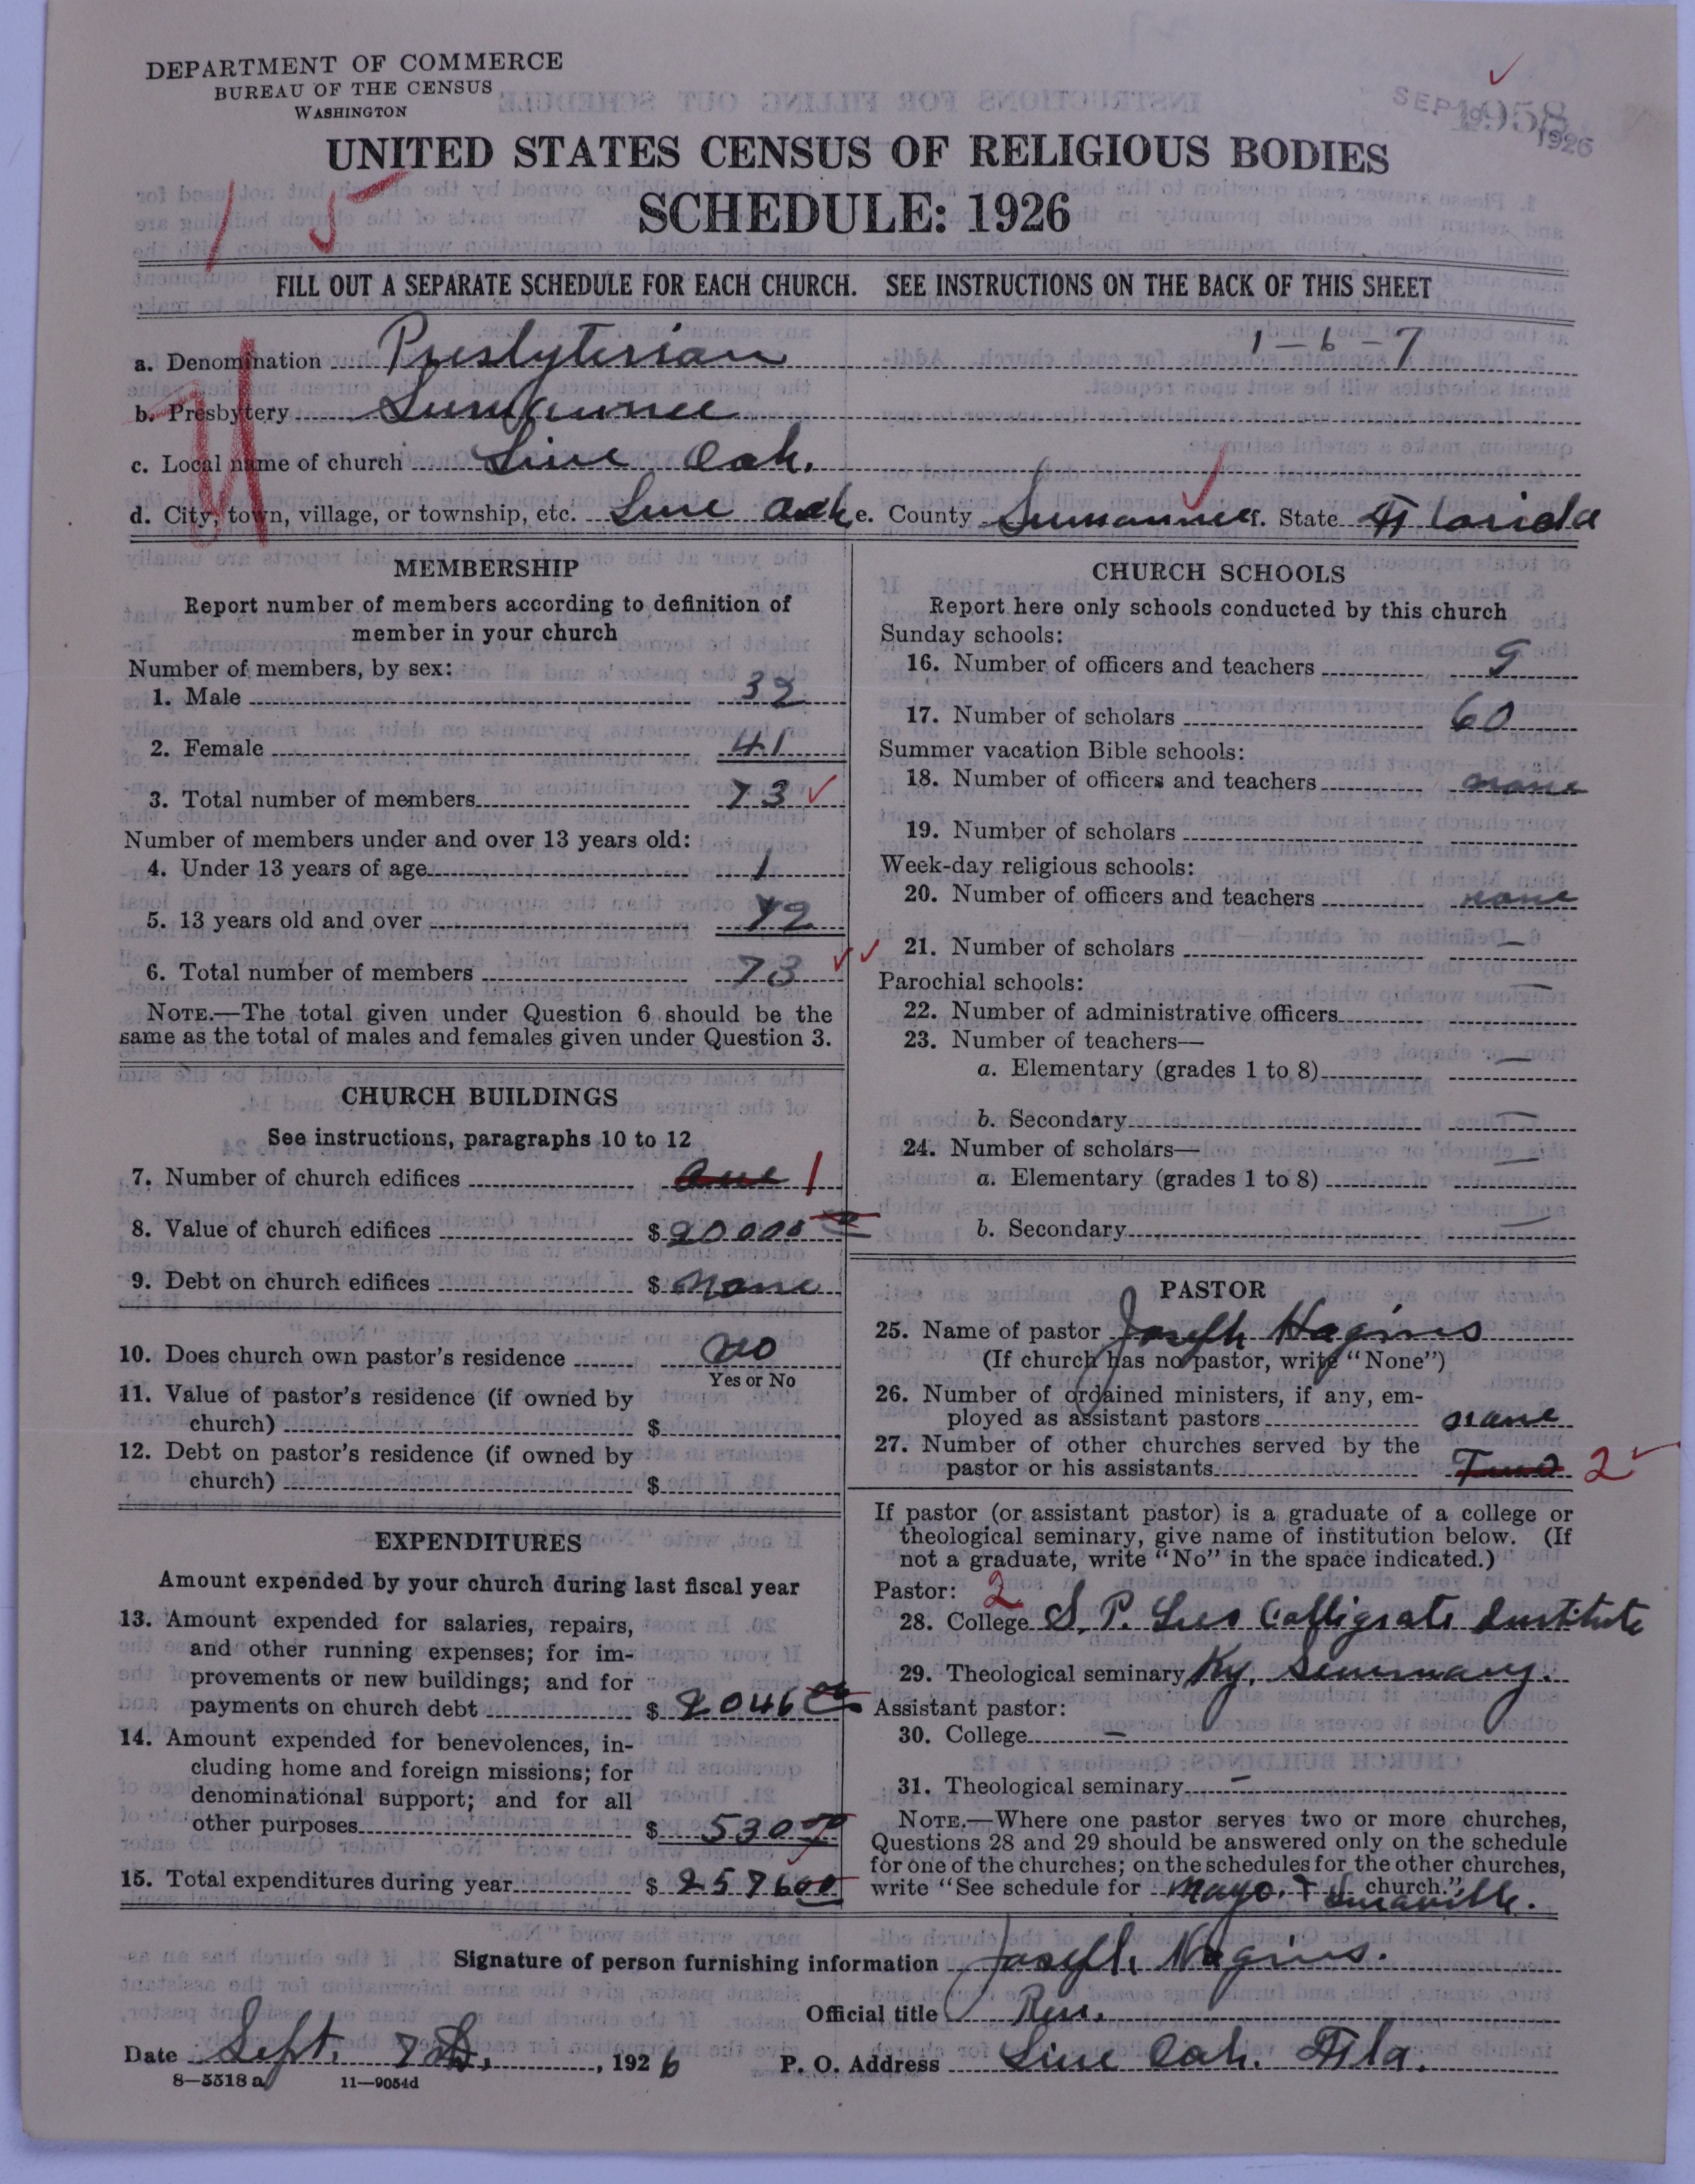 DEPARTMENT OF COMMERCE
BUREAU OF THE CENSUS
WASHINGTON
SEP 9 1926
1958
UNITED STATES CENSUS OF RELIGIOUS BODIES
SCHEDULE: 1926
1 5
FILL OUT A SEPARATE SCHEDULE FOR EACH CHURCH. SEE INSTRUCTIONS ON THE BACK OF THIS SHEET
a. Denomination Presbyterian 1-6-7
b. Presbytery Suwannee
c. Local name of church Live Oak.
d. City, town, village, or township, etc. Live Oak e. County Suwannee f. State Florida
MEMBERSHIP
Report number of members according to definition of
member in your church
Number of members, by sex:
1. Male 32
2. Female 41
3. Total number of members 73
Number of members under and over 13 years old:
4. Under 13 years of age 1
5. 13 years old and over 72
6. Total number of members 73
NOTE.—The total given under Question 6 should be the
same as the total of males and females given under Question 3.
CHURCH BUILDINGS
See instructions, paragraphs 10 to 12
7. Number of church edifices One 1
8. Value of church edifices $ 20000
9. Debt on church edifices $ None
10. Does church own pastor's residence No
Yes or No
11. Value of pastor's residence (if owned by
church) $
12. Debt on pastor's residence (if owned by
church) $
EXPENDITURES
Amount expended by your church during last fiscal year
13. Amount expended for salaries, repairs,
and other running expenses; for im-
provements or new buildings; and for
payments on church debt $ 2046 00
14. Amount expended for benevolences, in-
cluding home and foreign missions; for
denominational support; and for all
other purposes $ 530
15. Total expenditures during year $ 2576 00
CHURCH SCHOOLS
Report here only schools conducted by this church
Sunday schools:
16. Number of officers and teachers 9
17. Number of scholars 60
Summer vacation Bible schools:
18. Number of officers and teachers none
19. Number of scholars
Week-day religious schools:
20. Number of officers and teachers none
21. Number of scholars —
Parochial schools:
22. Number of administrative officers —
23. Number of teachers—
a. Elementary (grades 1 to 8) —
b. Secondary —
24. Number of scholars—
a. Elementary (grades 1 to 8) —
b. Secondary —
PASTOR
25. Name of pastor Joseph Hagins
(If church has no pastor, write "None")
26. Number of ordained ministers, if any, em-
ployed as assistant pastors none
27. Number of other churches served by the
pastor or his assistants Two 2
If pastor (or assistant pastor) is a graduate of a college or
theological seminary, give name of institution below. (If
not a graduate, write "No" in the space indicated.)
Pastor: 2
28. College S. P. Lees Collegiate Institute
29. Theological seminary Ky. Seminary.
Assistant pastor:
30. College —
31. Theological seminary —
NOTE.—Where one pastor serves two or more churches,
Questions 28 and 29 should be answered only on the schedule
for one of the churches; on the schedules for the other churches,
write "See schedule for Mayo. & church."
Signature of person furnishing information Joseph Hagins.
Official title Rev.
Date Sept. 7, 1926 P. O. Address Live Oak. Fla.
8—5518 a 11—9054d